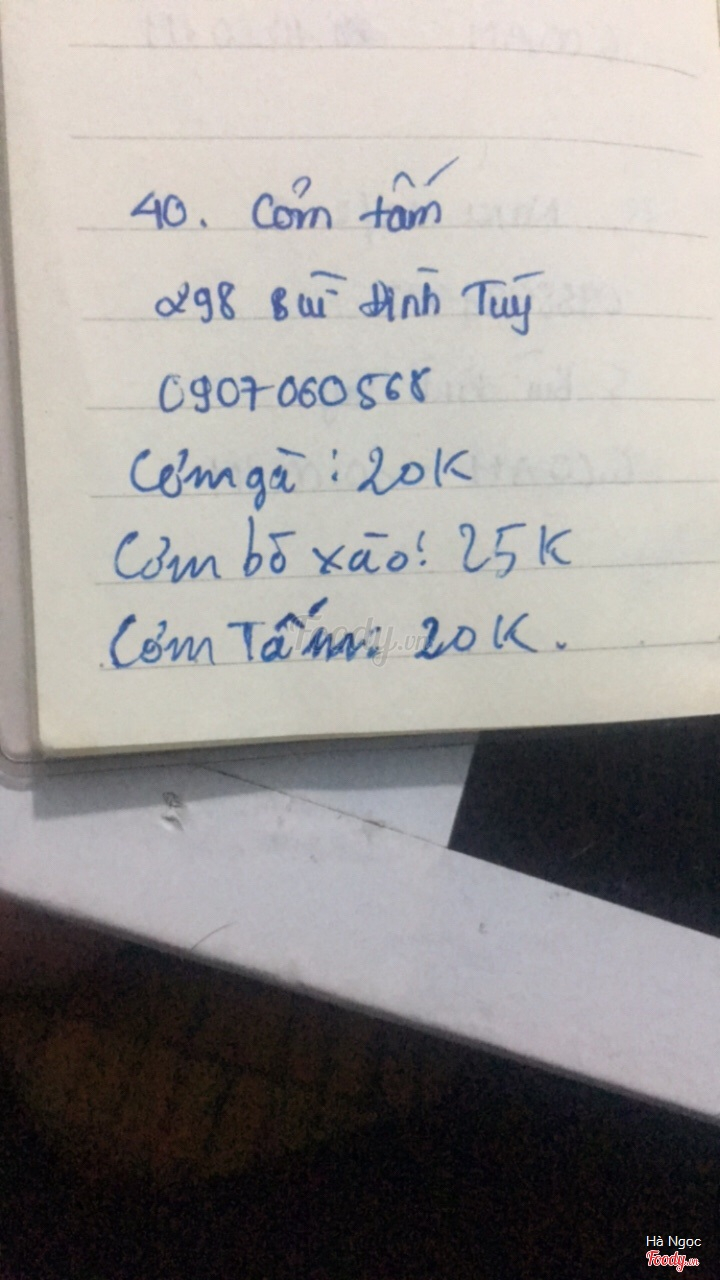 40. Cơm tấm
298 Bùi Đình Tuý
0907060568
Cơm gà: 20K
Cơm bò xào: 25K
Cơm Tấm: 20K.
Foody.vn
Hà Ngọc
Foody.vn